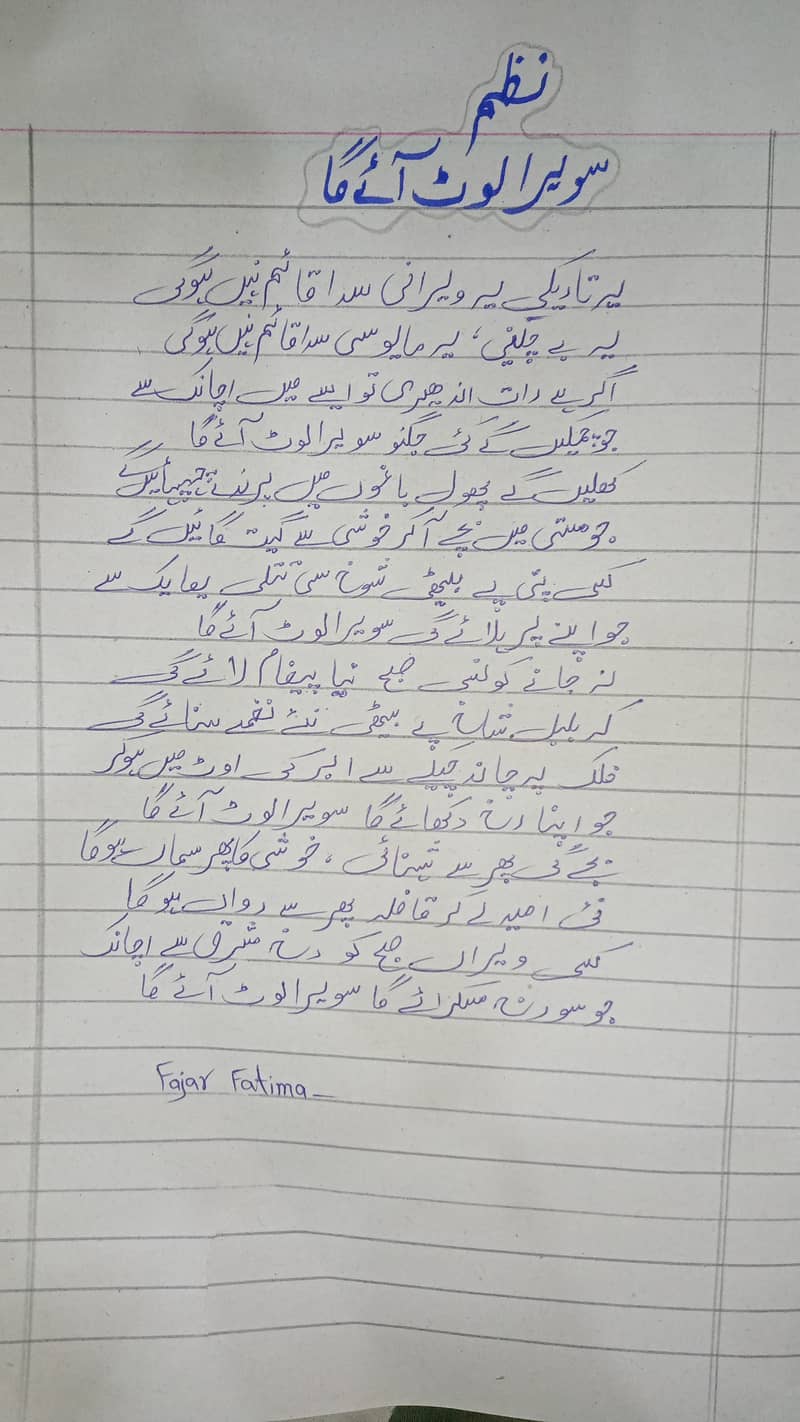 نظم
سویرا لوٹ آئے گا
یہ تاریکی یہ ویرانی سدا قائم نہیں ہوگی
یہ بے چینی، یہ مایوسی سدا قائم نہیں ہوگی
اگر ہے رات اندھیری تو ایسے میں اچانک سے
جو چمکیں گے کئی جگنو سویرا لوٹ آئے گا
کھلیں گے پھول باغوں میں پرندے چہچہائیں گے
جو مستی میں بچے آکر خوشی سے گیت گائیں گے
کسی پتی پے بیٹھی شوخ سی تتلی یکایک سے
جو اپنے پر ہلائے گی سویرا لوٹ آئے گا
نہ جانے کونسی صبح نیا پیغام لائے گی
کہ بلبل شاخ پے بیٹھی نئے نغمے سنائے گی
فلک پہ چاند چپکے سے ابر کی اوٹ میں ہوکر
جو اپنا رخ دکھائے گا سویرا لوٹ آئے گا
بجے گی پھر سے شہنائی، خوشی کا پھر سماں ہوگا
نئی امید لے کر قافلہ پھر سے رواں ہوگا
کسی ویراں صبح کو رخ مشرق سے اچانک
جو سورج مسکرائے گا سویرا لوٹ آئے گا
Fajar Fatima_